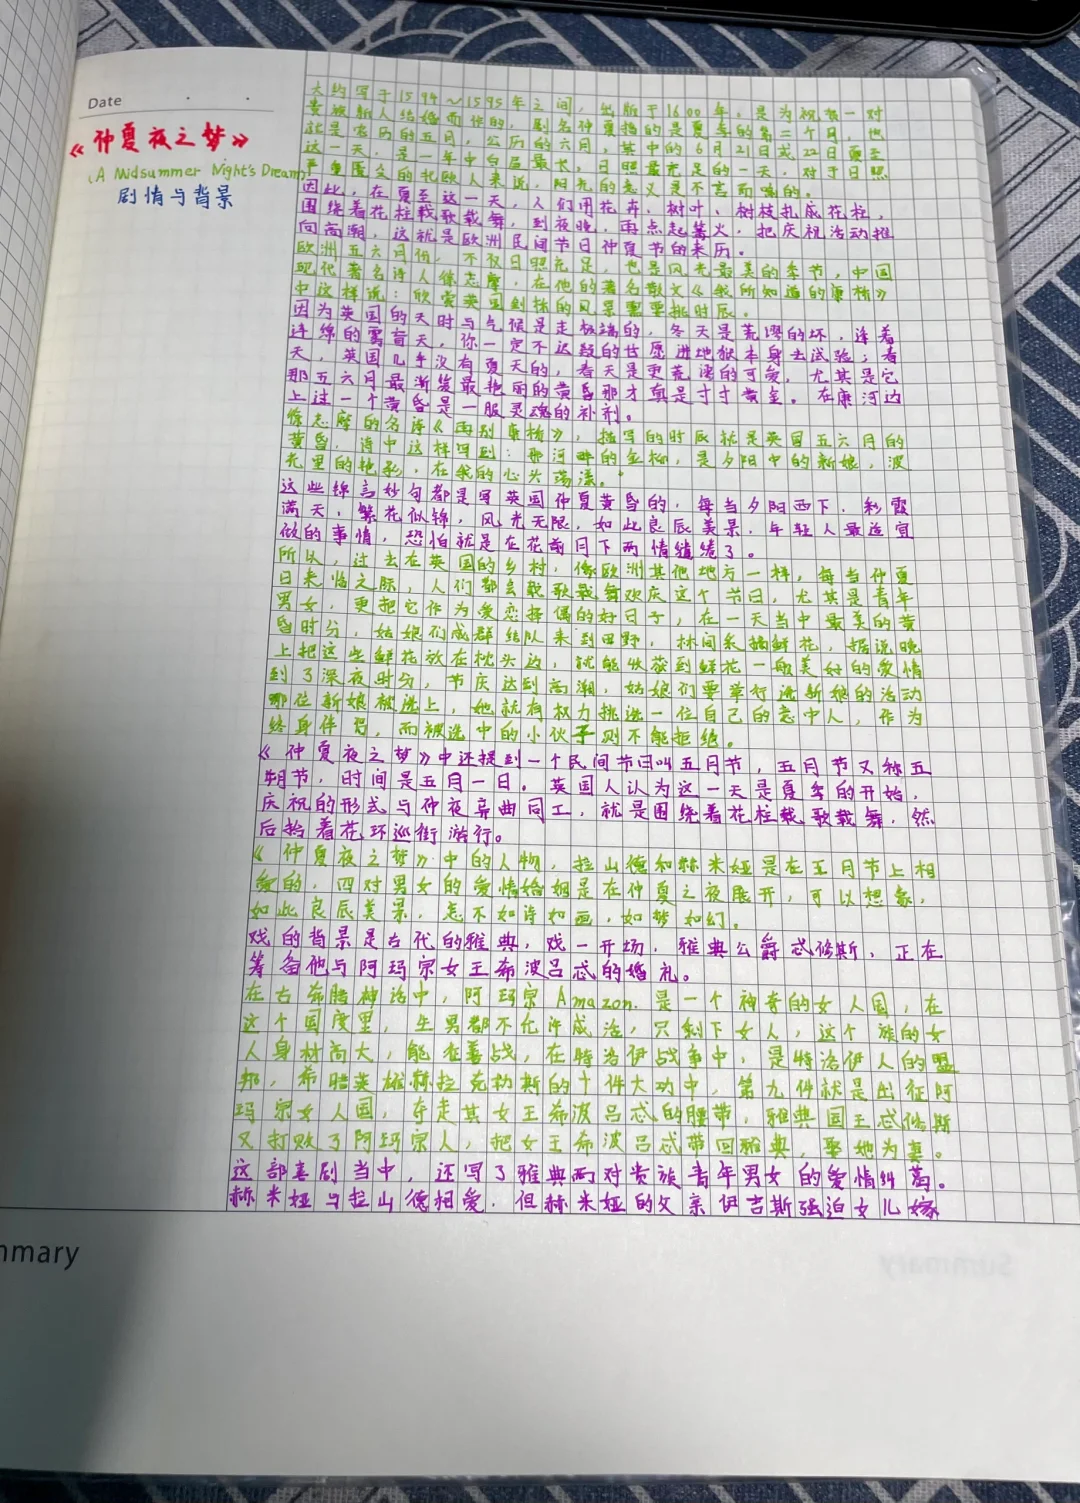 Date
《仲夏夜之梦》
(A Midsummer Night's Dream)
剧情与背景
大约写于1594～1595年之间，出版于1600年。是为祝贺一对
贵族新人结婚而作的，剧名仲夏指的是夏季的第二个月，也
就是农历的五月，公历的六月，其中的6月21日或22日夏至
这一天，是一年中白昼最长，日照最充足的一天，对于日照
严重匮乏的北欧人来说，阳光的意义是不言而喻的。
因此，在夏至这一天，人们用花卉、树叶、树枝扎成花柱，
围绕着花柱载歌载舞，到夜晚，再点起篝火，把庆祝活动推
向高潮，这就是欧洲民间节日仲夏节的来历。
欧洲五六月份，不仅日照充足，也是风光最美的季节，中国
现代著名诗人徐志摩，在他的著名散文《我所知道的康桥》
中这样说：欣赏英国到底的风景需要挑时辰。
因为英国的天时与气候是走极端的，冬天是荒谬的坏，逢着
连绵的雾盲天，你一定不迟疑的甘愿进地狱本身去试验；春
天，英国几乎没有夏天的，春天是更荒谬的可爱，尤其是它
那五六月最渐缓最艳丽的黄昏那才真是寸寸黄金。在康河边
上过一个黄昏是一服灵魂的补剂。
徐志摩的名诗《再别康桥》，描写的时辰就是英国五六月的
黄昏，诗中这样写到：那河畔的金柳，是夕阳中的新娘，波
光里的艳影，在我的心头荡漾。
这些锦言妙句都是写英国仲夏黄昏的，每当夕阳西下，彩霞
满天，繁花似锦，风光无限，如此良辰美景，年轻人最适宜
做的事情，恐怕就是在花前月下两情缱绻了。
所以，过去在英国的乡村，像欧洲其他地方一样，每当仲夏
日来临之际，人们都会载歌载舞欢庆这个节日，尤其是青年
男女，更把它作为爱恋择偶的好日子，在一天当中最美的黄
昏时分，姑娘们成群结队来到田野，林间采摘鲜花，据说晚
上把这些鲜花放在枕头边，就能收获到鲜花一般美好的爱情
到了深夜时分，节庆达到高潮，姑娘们要举行选新娘的活动
哪位新娘被选上，她就有权力挑选一位自己的意中人，作为
终身伴侣，而被选中的小伙子则不能拒绝。
《仲夏夜之梦》中还提到一个民间节日叫五月节，五月节又称五
朔节，时间是五月一日。英国人认为这一天是夏季的开始，
庆祝的形式与仲夜异曲同工，就是围绕着花柱载歌载舞，然
后抬着花环巡街游行。
《仲夏夜之梦》中的人物，拉山德和赫米娅是在五月节上相
爱的，四对男女的爱情婚姻是在仲夏之夜展开，可以想象，
如此良辰美景，怎不如诗如画，如梦如幻。
戏的背景是古代的雅典，戏一开场，雅典公爵忒修斯，正在
筹备他与阿玛宗女王希波吕忒的婚礼。
在古希腊神话中，阿玛宗Amazon.是一个神奇的女人国，在
这个国度里，生男都不允许成活，只剩下女人，这个族的女
人身材高大，能征善战，在特洛伊战争中，是特洛伊人的盟
邦，希腊英雄赫拉克勒斯的十件大功中，第九件就是出征阿
玛宗女人国，夺走其女王希波吕忒的腰带，雅典国王忒修斯
又打败了阿玛宗人，把女王希波吕忒带回雅典，娶她为妻。
这部喜剧当中，还写了雅典两对贵族青年男女的爱情纠葛。
赫米娅与拉山德相爱，但赫米娅的父亲伊吉斯强迫女儿嫁
mmary